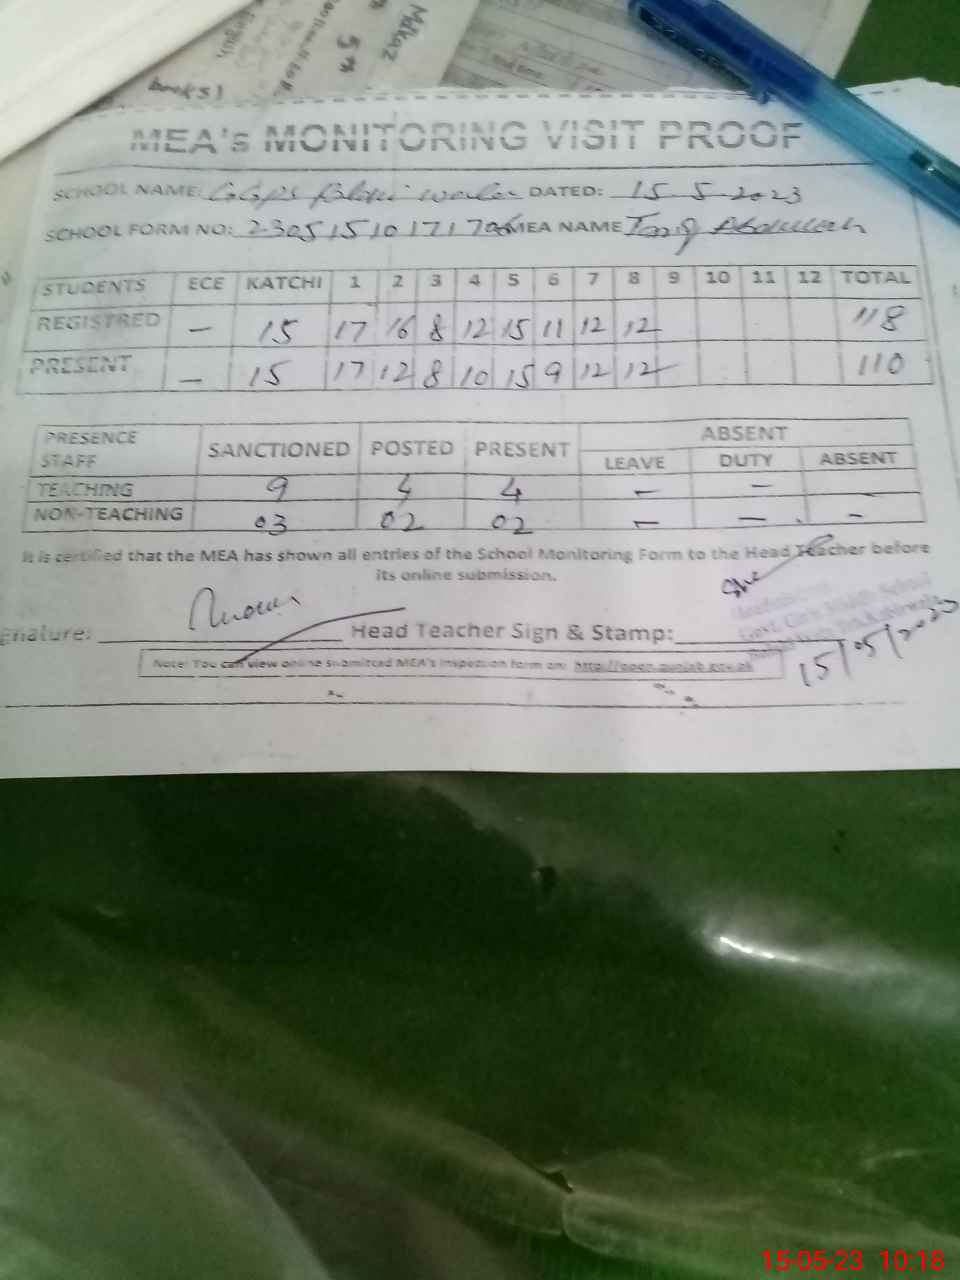 book(s)
MEA's MONITORING VISIT PROOF
SCHOOL NAME: DATED: 15 5 2023
SCHOOL FORM NO: MEA NAME Abdullah
STUDENTS ECE KATCHI 1 2 3 4 5 6 7 8 9 10 11 12 TOTAL
REGISTRED - 15 17 16 8 12 15 11 12 12 118
PRESENT - 15 17 12 8 10 15 9 12 12 110
PRESENCE STAFF SANCTIONED POSTED PRESENT ABSENT
LEAVE DUTY ABSENT
TEACHING 9 4 4 - -
NON-TEACHING 03 02 02 - - -
It is certified that the MEA has shown all entries of the School Monitoring Form to the Head Teacher before
its online submission.
gnature: Head Teacher Sign & Stamp:
15/05/2023
Note: You can view online submitted MEA's inspection form on: http://open.punjab.gov.pk
15-05-23 10:18